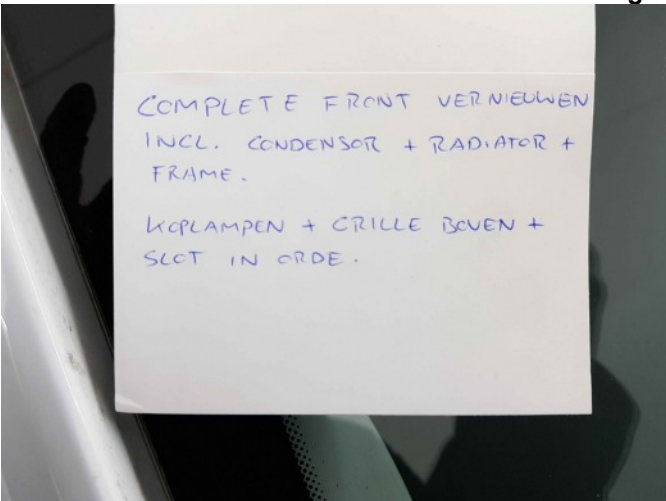 COMPLETE FRONT VERNIEUWEN
INCL. CONDENSOR + RADIATOR +
FRAME.
KOPLAMPEN + GRILLE BOVEN +
SLOT IN ORDE.